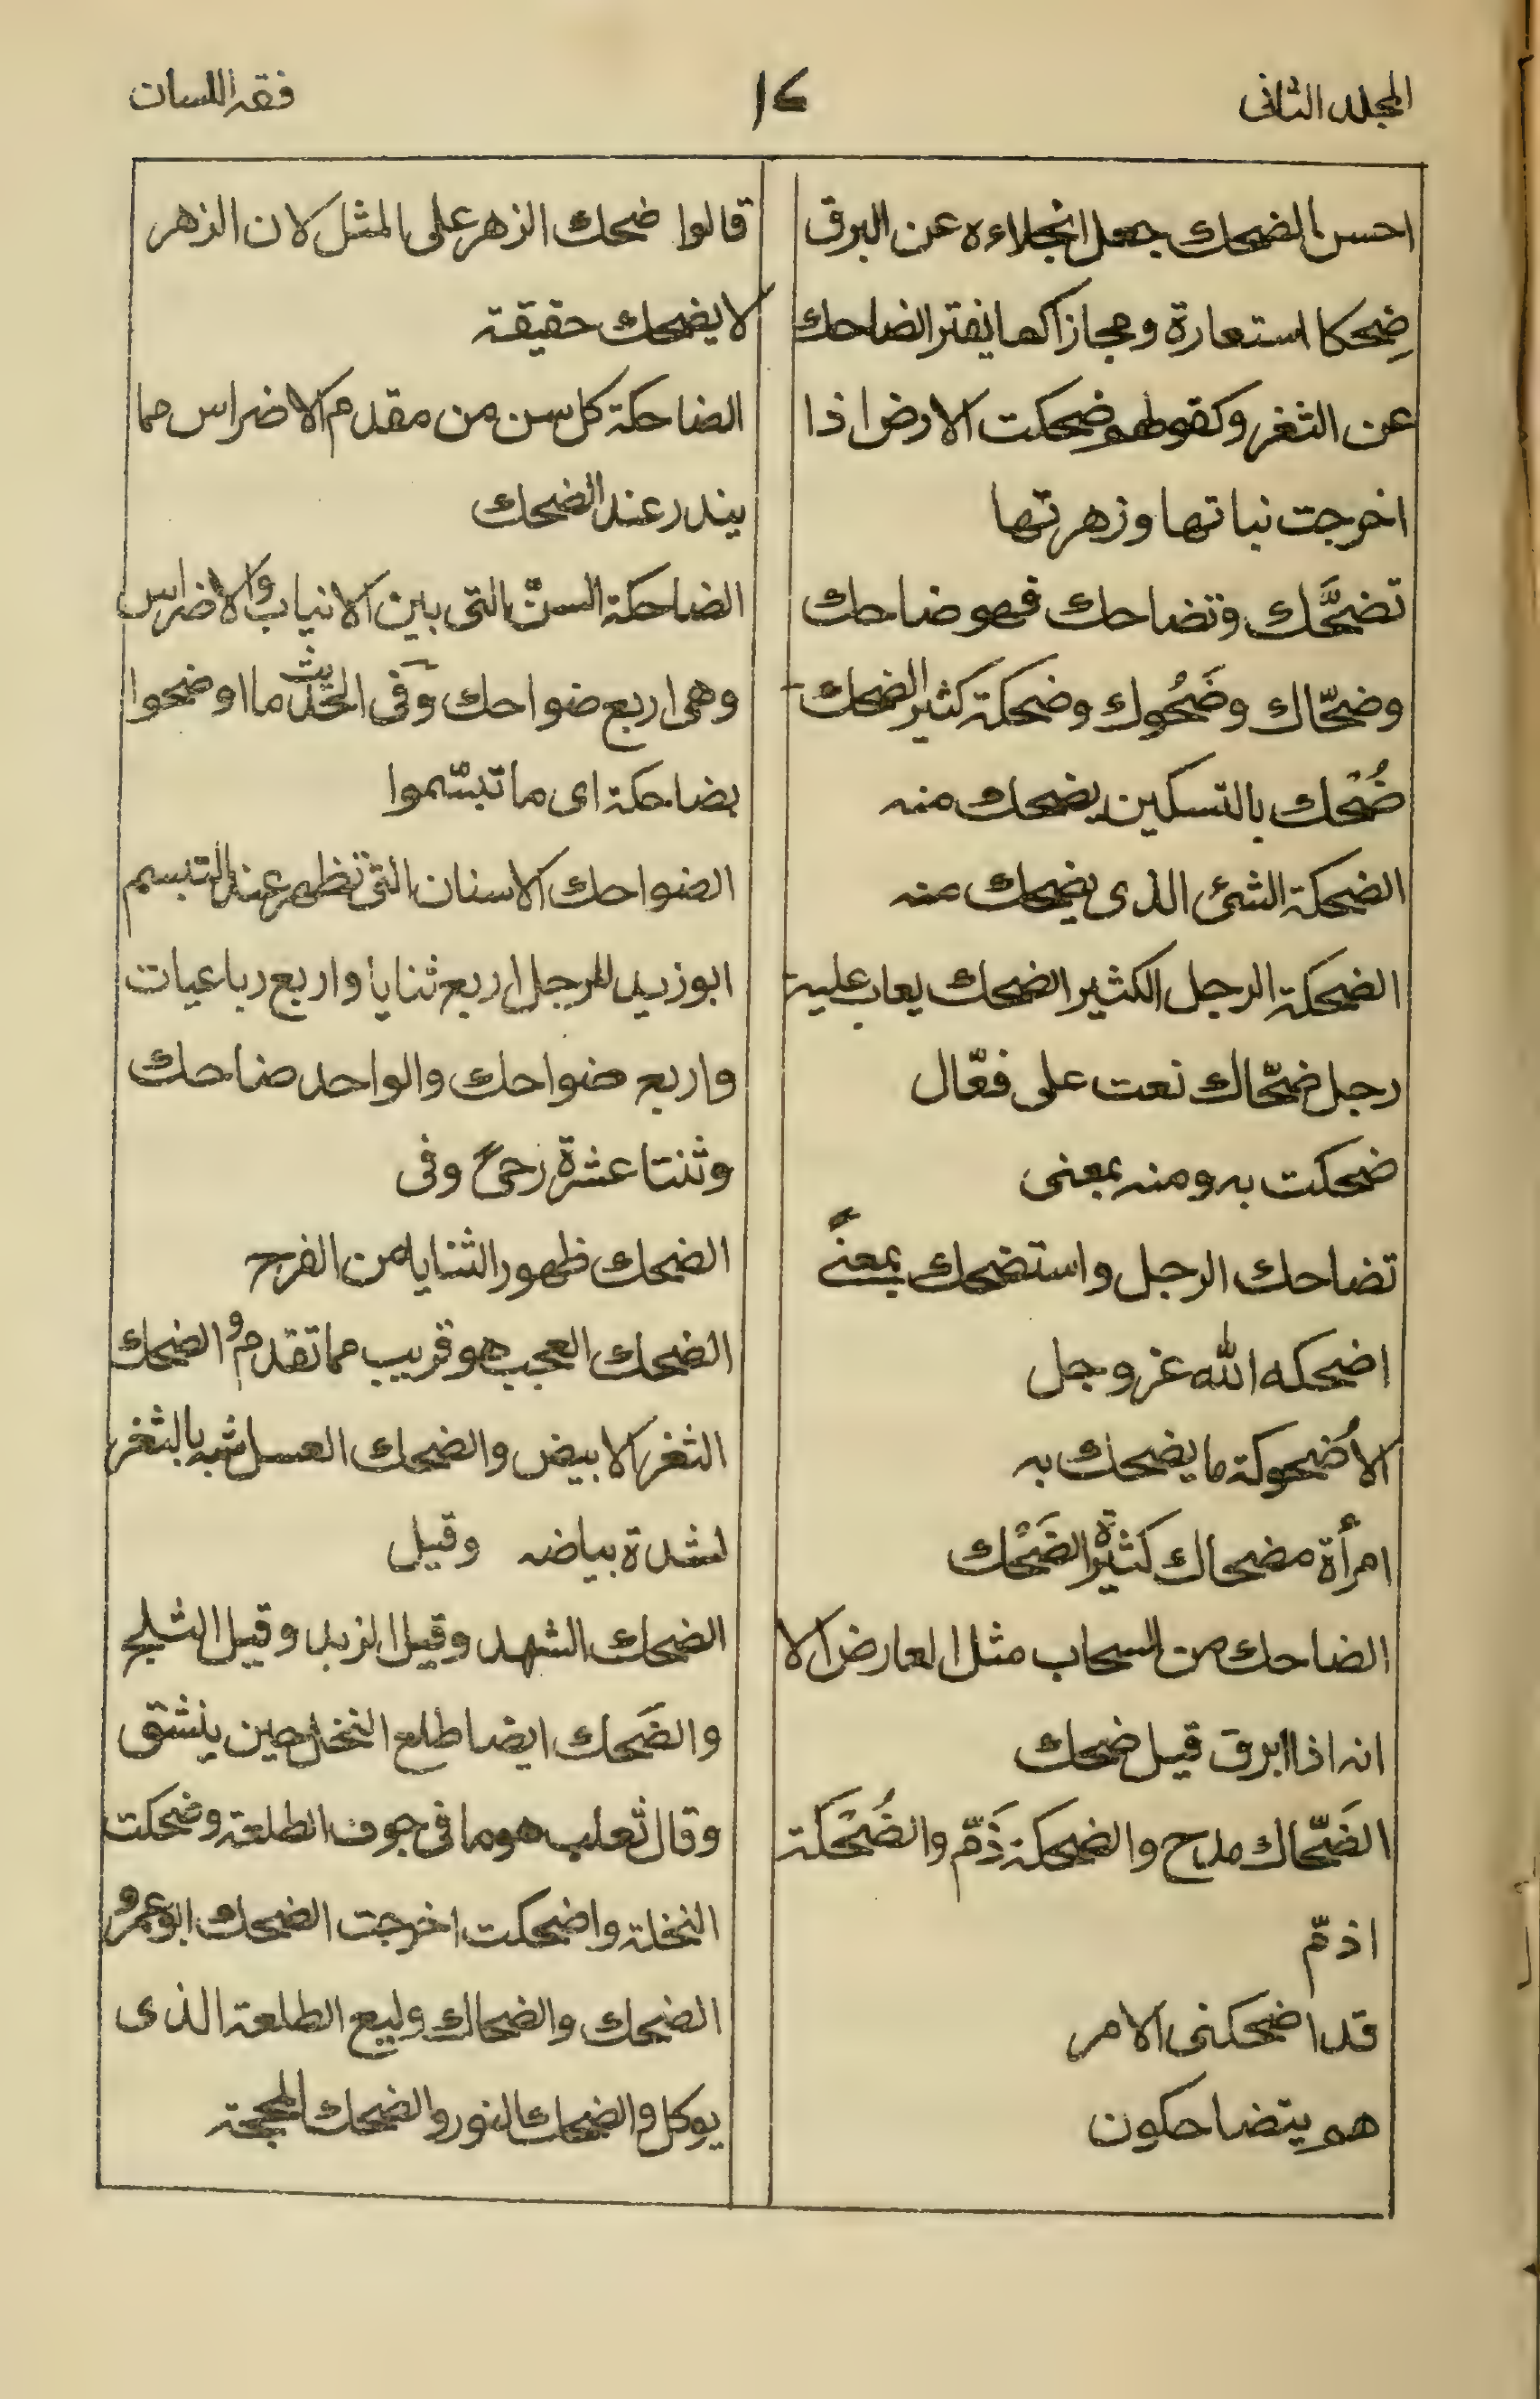 المجلد الثانى
١٢
فقه اللسان
احسن الضحك جعل انجلاءه عن البرق
ضِحكا استعارة ومجازا كما يفتر الضاحك
عن الثغر وكقولهم ضحكت الارض اذا
اخرجت نباتها وزهرتها
تضحَّك وتضاحك فهو ضاحك
وضحّاك وضَحُوك وضحكة كثير الضحك
ضُحْك بالتسكين يضحك منه
الضحكة الشئ الذى يضحك منه
الضحكة الرجل الكثير الضحك يعاب عليه
رجل ضحّاك نعت على فعّال
ضحكت به ومنه بمعنى
تضاحك الرجل واستضحك بمعنىً
اضحكه الله عز وجل
الاُضحوكة ما يضحك به
امرأة مضحاك كثيرة الضَحْك
الضاحك من السحاب مثل العارض الا
انه اذا ابرق قيل ضحك
الضَحّاك مدح والضحكة ذَمّ والضُحْكَة
اذمّ
قد اضحكنى الامر
هم يتضاحكون
قالوا ضحك الزهر على المثل لان الزهر
لا يضحك حقيقة
الضاحكة كل سن من مقدم الاضراس مما
يندر عند الضحك
الضاحكة السنّ التى بين الانياب والاضراس
وهى اربع ضواحك وفى الحديث ما اوضحوا
بضاحكة اى ما تبسّموا
الضواحك الاسنان التى تظهر عند التبسم
ابو زيد للرجل اربع ثنايا واربع رباعيات
واربع ضواحك والواحد ضاحك
وثنتا عشرة رحىً وفى
الضحك ظهور الثنايا من الفرح
الضحك العجب هو قريب مما تقدم و الضحك
الثغر الابيض والضحك العسل شبه بالثغر
لشدة بياضه وقيل
الضحك الشهد وقيل الزبد وقيل الثلج
والضَحك ايضا طلع النخل حين ينشق
وقال ثعلب هو ما فى جوف الطلعة وضحكت
النخلة واضحكت اخرجت الضحك ابو عمرو
الضحك والضحاك وليع الطلعة الذى
يوكل و الضحك النور والضحك المحجة